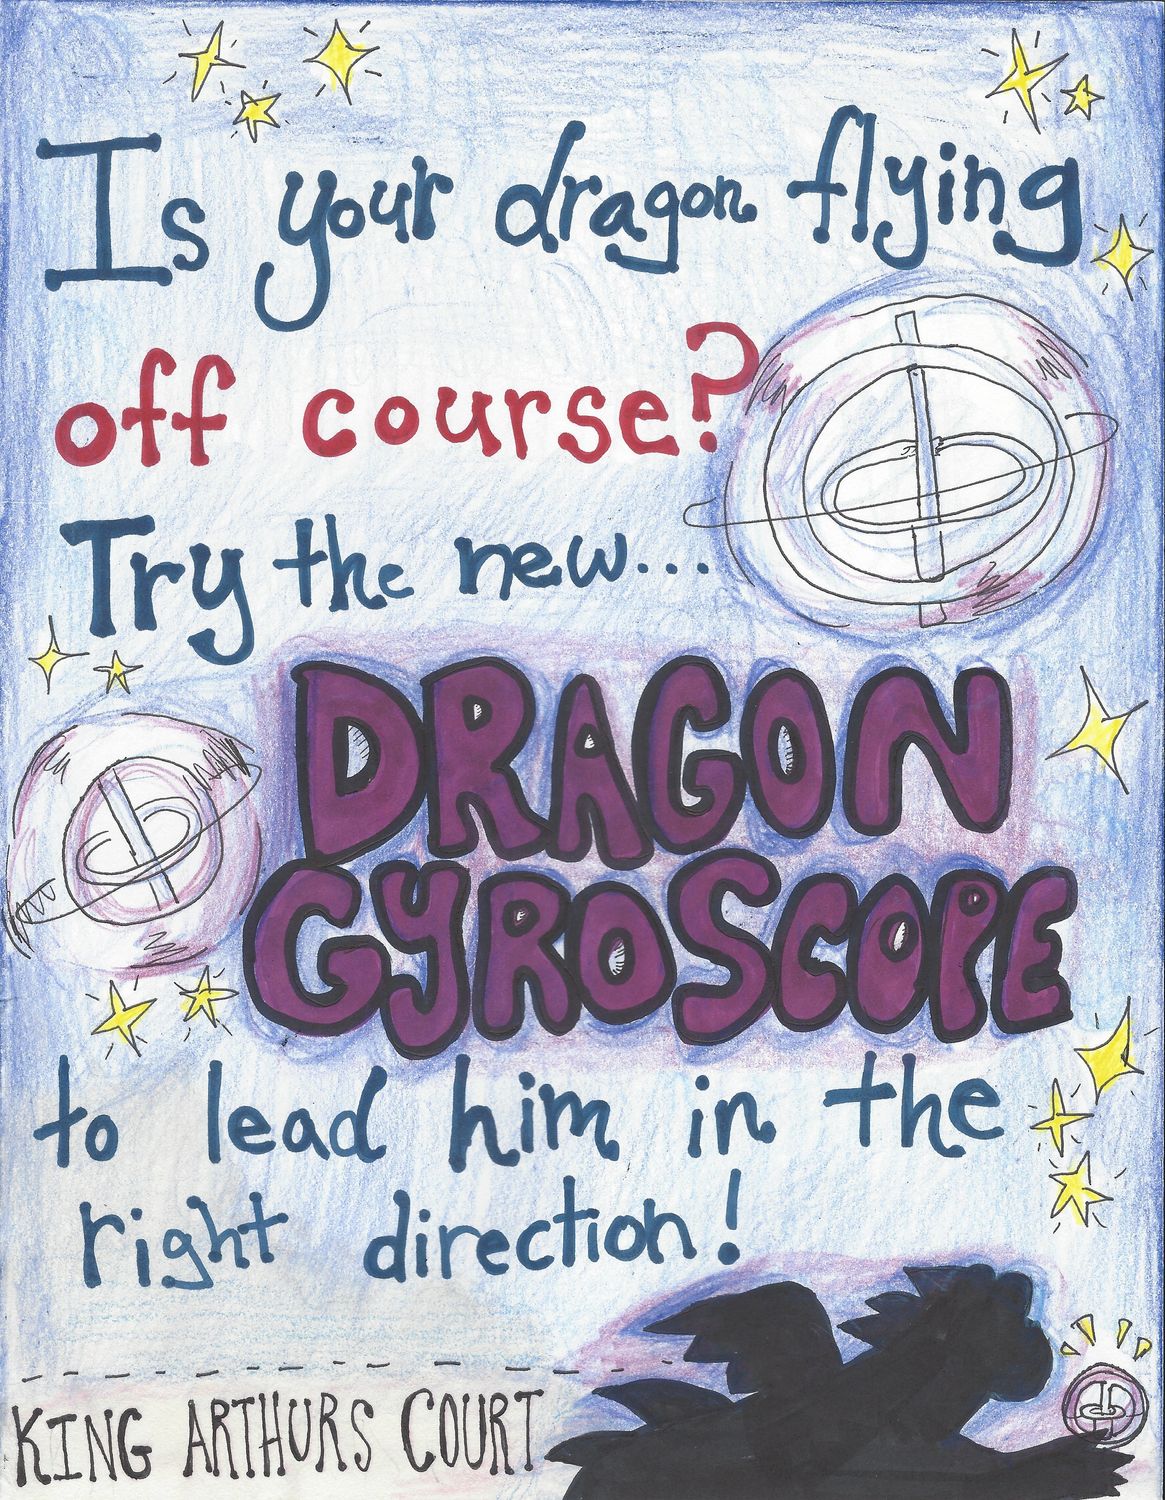 Is your dragon flying
off course?
Try the new...
DRAGON
GYROSCOPE
to lead him in the
right direction!
KING ARTHURS COURT